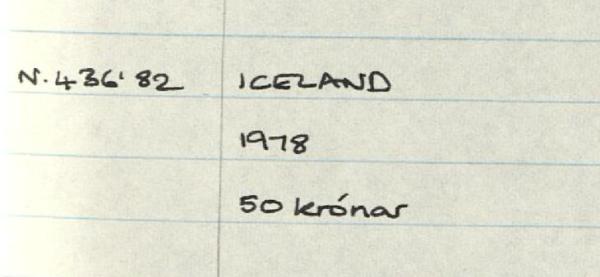 N.436'82 ICELAND
1978
50 krónar